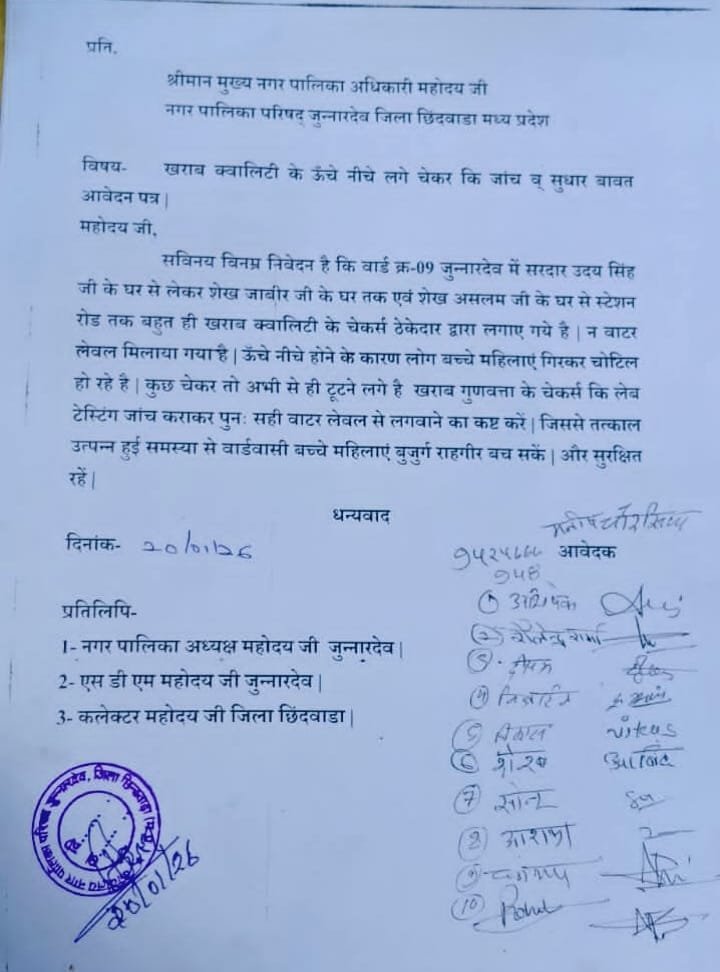 प्रति,
श्रीमान मुख्य नगर पालिका अधिकारी महोदय जी
नगर पालिका परिषद् जुन्नारदेव जिला छिंदवाडा मध्य प्रदेश
विषय- खराब क्वालिटी के ऊँचे नीचे लगे चेकर कि जांच व् सुधार बावत
आवेदन पत्र |
महोदय जी,
सविनय विनम्र निवेदन है कि वार्ड क्र-09 जुन्नारदेव में सरदार उदय सिंह
जी के घर से लेकर शेख जाबीर जी के घर तक एवं शेख असलम जी के घर से स्टेशन
रोड तक बहुत ही खराब क्वालिटी के चेकर्स ठेकेदार द्वारा लगाए गये है | न वाटर
लेवल मिलाया गया है | ऊँचे नीचे होने के कारण लोग बच्चे महिलाएं गिरकर चोटिल
हो रहे है | कुछ चेकर तो अभी से ही टूटने लगे है खराब गुणवत्ता के चेकर्स कि लेब
टेस्टिंग जांच कराकर पुनः सही वाटर लेवल से लगवाने का कष्ट करें | जिससे तत्काल
उत्पन्न हुई समस्या से वार्डवासी बच्चे महिलाएं बुजुर्ग राहगीर बच सकें | और सुरक्षित
रहें |
धन्यवाद
मनीष चौरसिया
दिनांक- 20/01/26
आवेदक
948
① अभिषेक
② शैलेन्द्र शर्मा
③ दीपक
④
⑤ विकास vikas
⑥
⑦ सोनू
⑧
⑨
⑩ Rahul
प्रतिलिपि-
1- नगर पालिका अध्यक्ष महोदय जी जुन्नारदेव |
2- एस डी एम महोदय जी जुन्नारदेव |
3- कलेक्टर महोदय जी जिला छिंदवाडा |
नगर पालिका परिषद जुन्नारदेव, जिला छिन्दवाड़ा (म.प्र.)
20/01/26